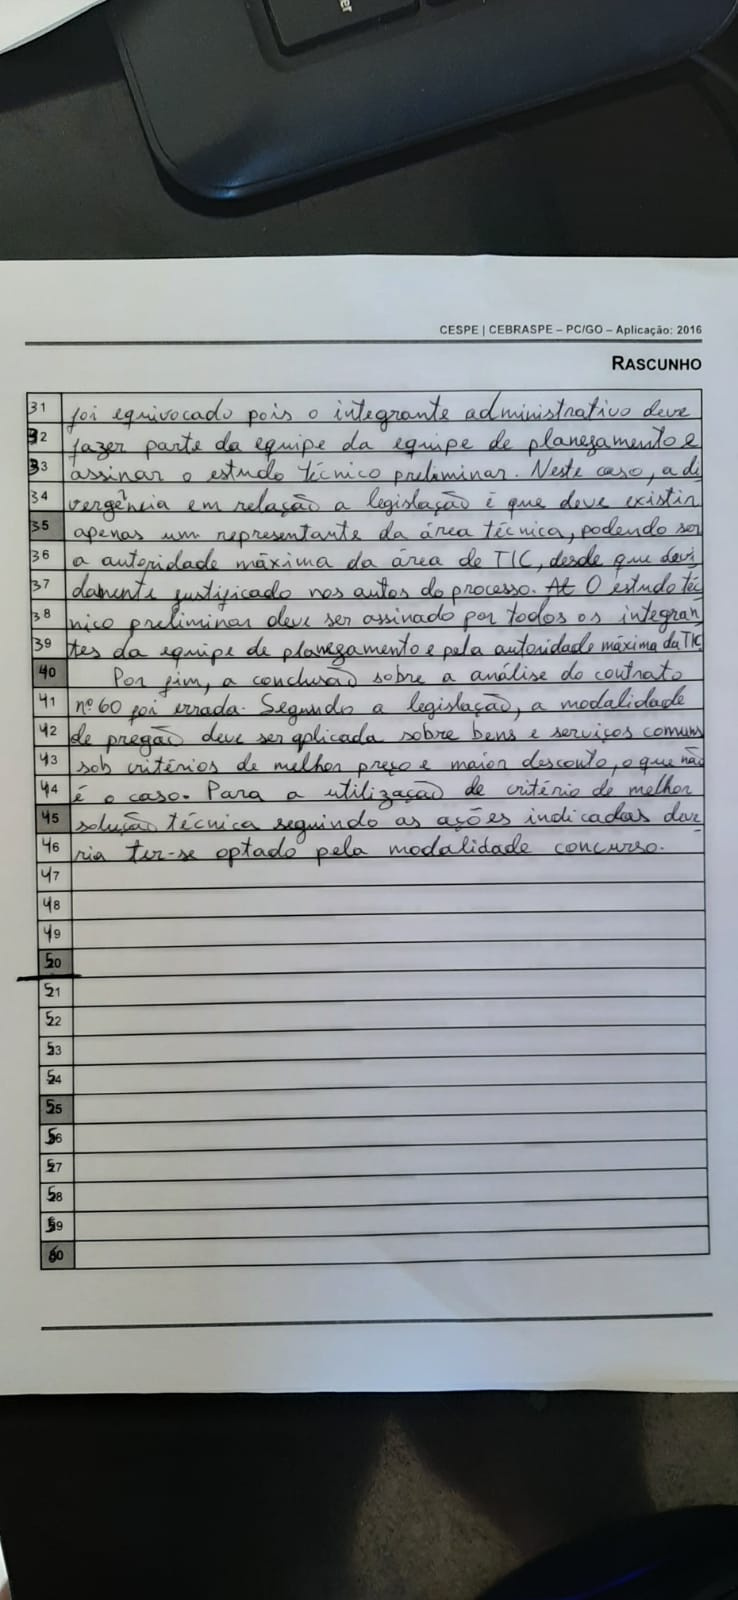 er
CESPE | CEBRASPE – PC/GO – Aplicação: 2016
RASCUNHO
31 foi equivocado pois o integrante administrativo deve
32 fazer parte da equipe da equipe de planejamento e
33 assinar o estudo técnico preliminar. Neste caso, a di
34 vergência em relação a legislação é que deve existir
35 apenas um representante da área técnica, podendo ser
36 a autoridade máxima da área de TIC, desde que devi
37 damente justificado nos autos do processo. At O estudo téc
38 nico preliminar deve ser assinado por todos os integran
39 tes da equipe de planejamento e pela autoridade máxima da TIC
40 Por fim, a conclusão sobre a análise do contrato
41 nº 60 foi errada. Segundo a legislação, a modalidade
42 de pregão deve ser aplicada sobre bens e serviços comuns
43 sob critérios de melhor preço e maior desconto, o que não
44 é o caso. Para a utilização de critério de melhor
45 solução técnica seguindo as ações indicadas deve
46 ria ter-se optado pela modalidade concurso.
47
48
49
50
51
52
53
54
55
56
57
58
59
60